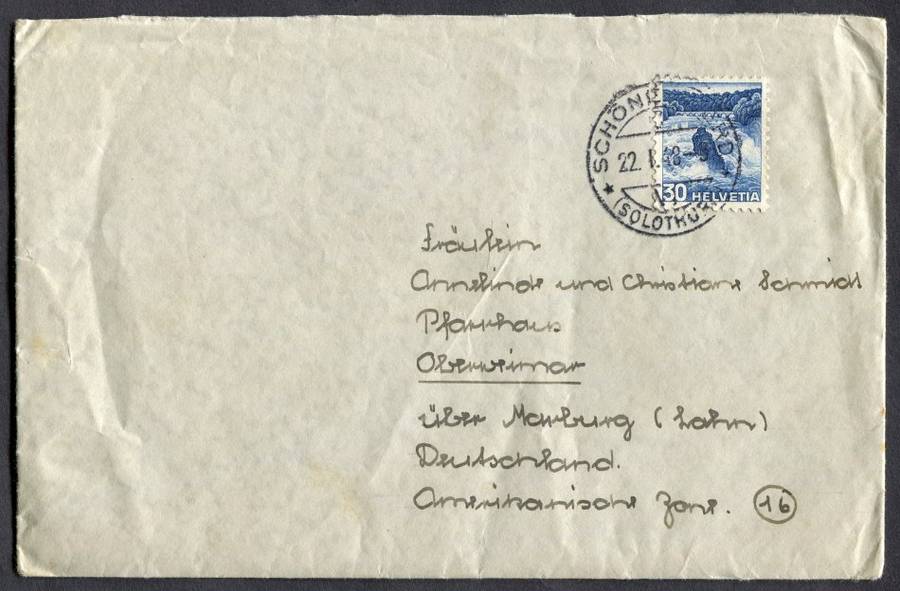 SCHÖN RD
22. 48-
(SOLOTHUR
30 HELVETIA
Fräulein
Annelinde und Christiane Schmidt
Pfarrhaus
Oberweimar
über Marburg (Lahn)
Deutschland.
Amerikanische Zone. 16